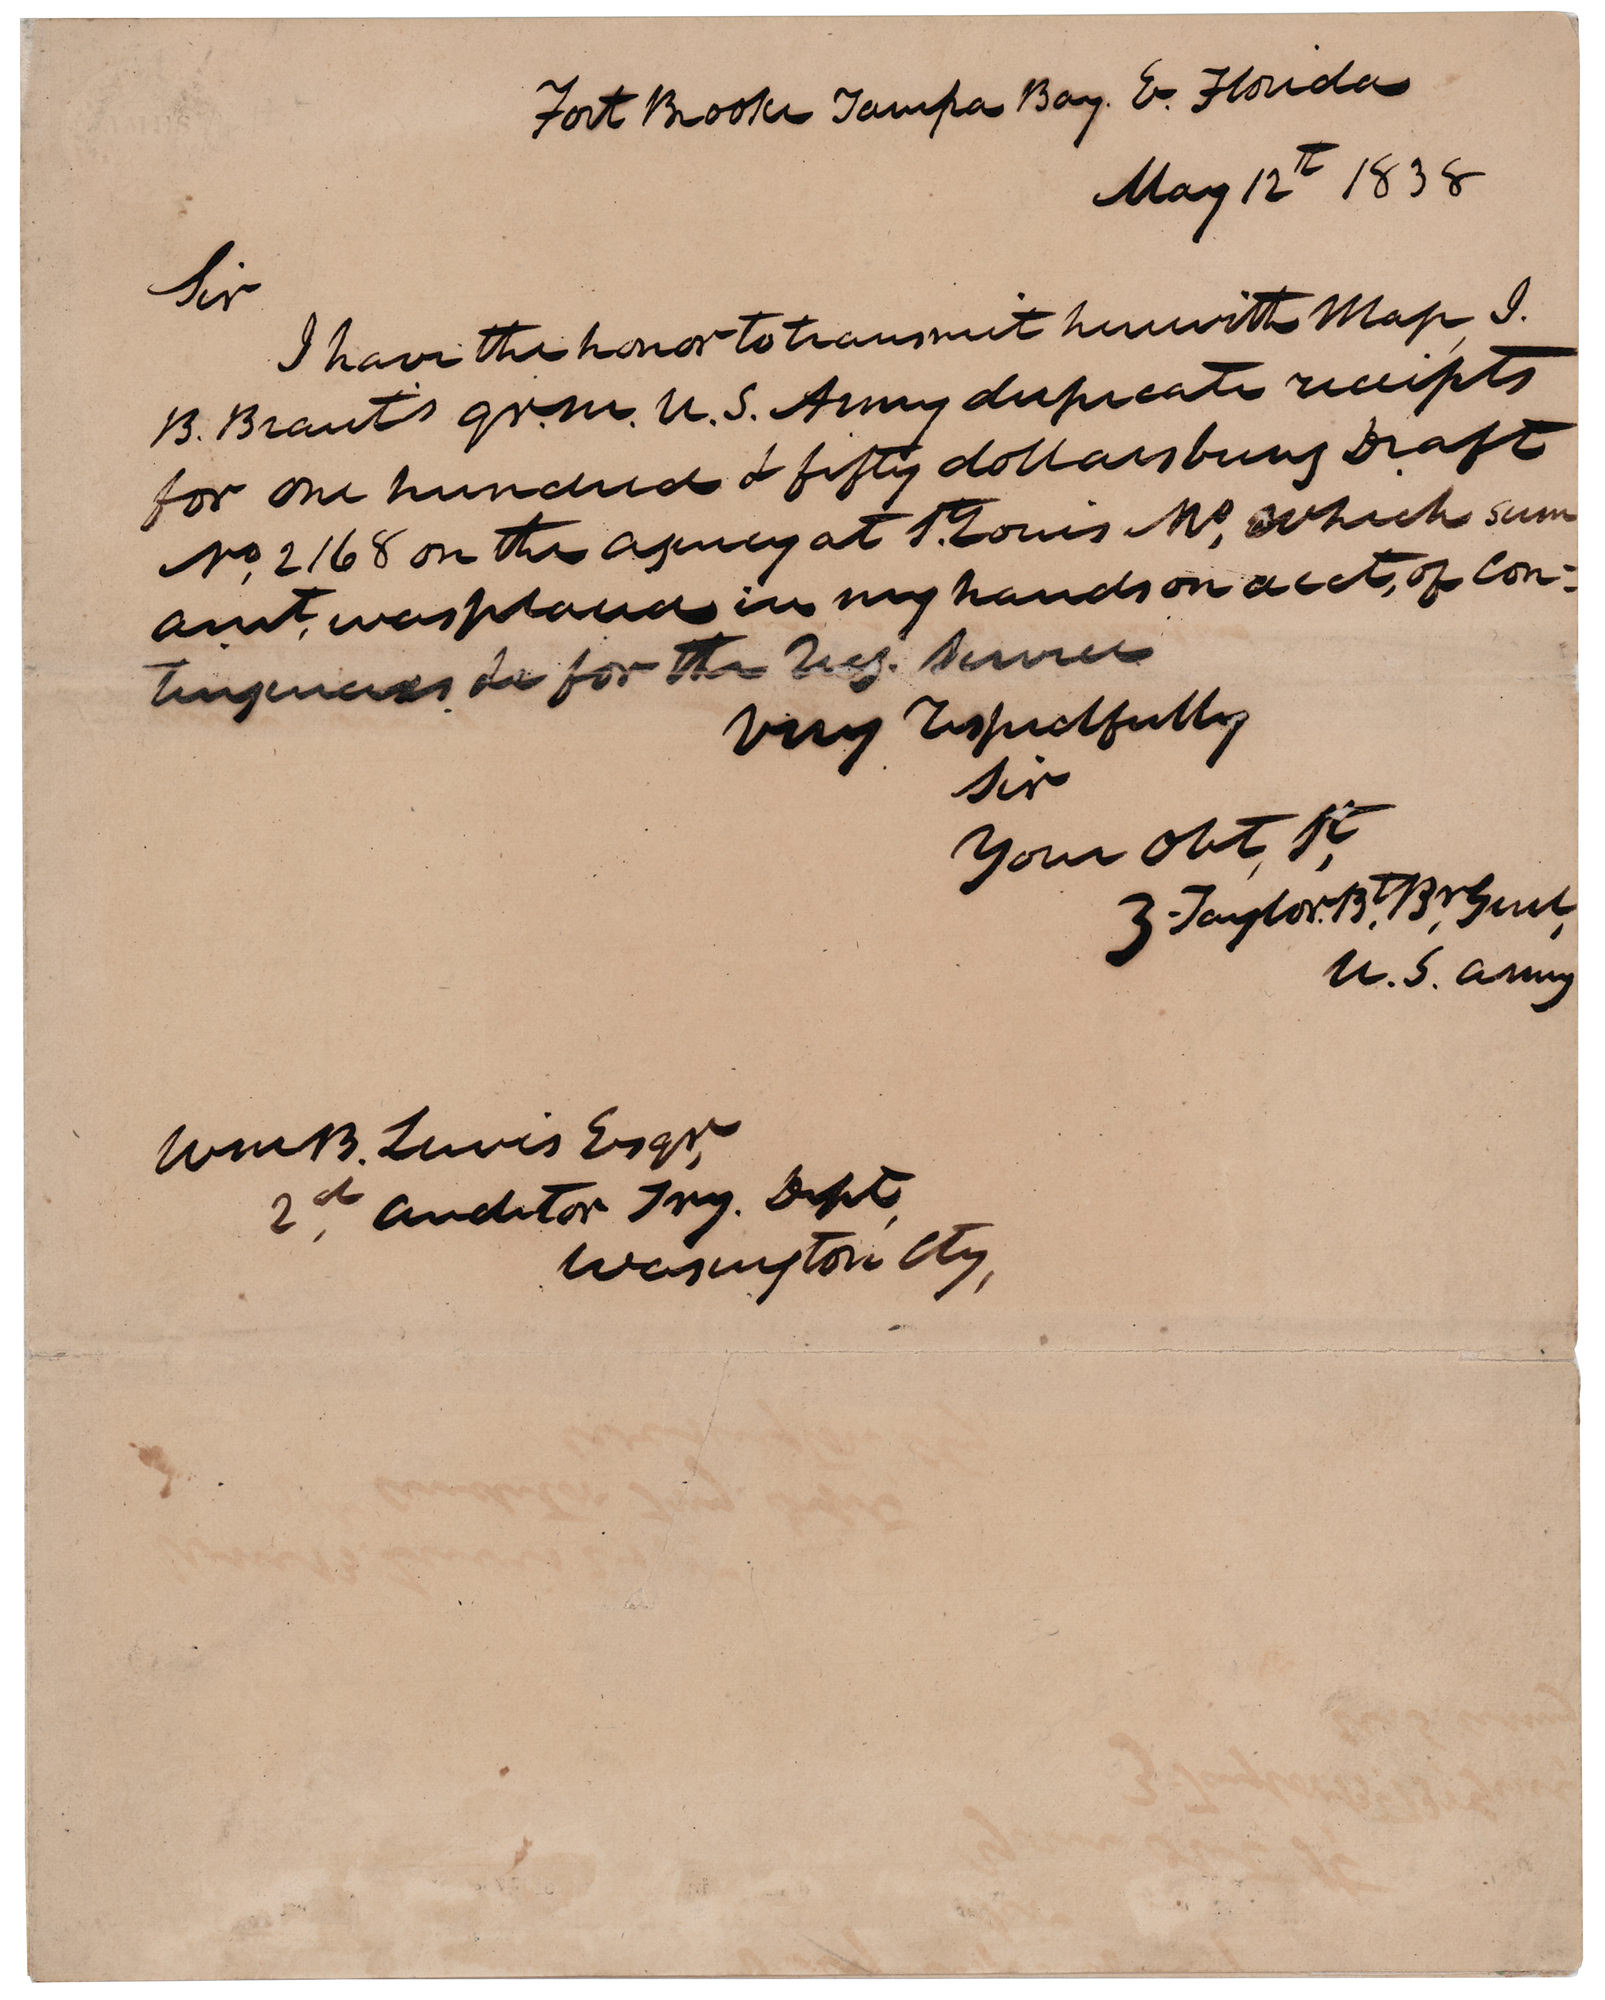 Fort Brooke Tampa Bay. E. Florida
May 12th 1838
Sir
I have the honor to transmit herewith Maj, I.
B. Brant's qr. m. U. S. Army duplicate receipts
for one hundred & fifty dollars being Draft
No, 2168 on the agency at St. Louis Mo, which sum
amt, was placed in my hands on acct, of con=
tingencies &c for the Reg. Service
Very Respectfully
Sir
Your Obt, St,
Z. Taylor. Bt, Br, Genl,
U. S. Army
Wm B. Lewis Esqr,
2d, Auditor Try. Dept,
Wasington City,